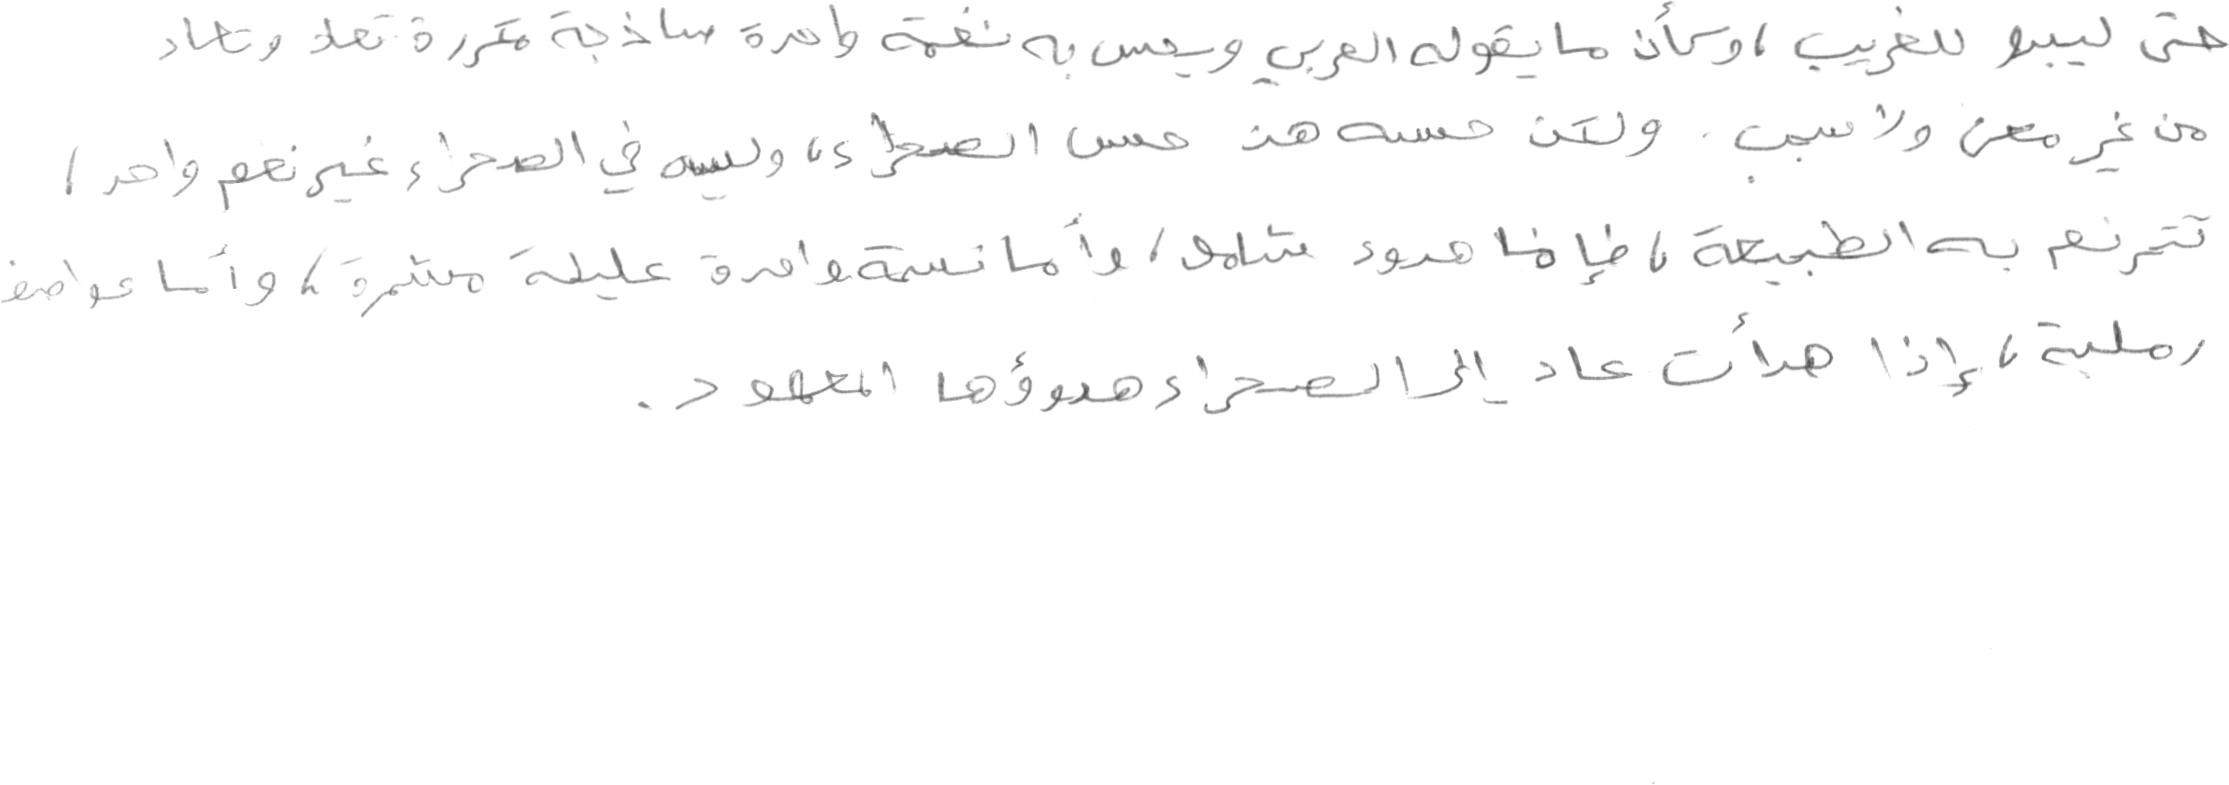 حتى ليبدو للغريب، وكأن ما يقوله العربي ويحس به نغمة واحدة ساذجة مكررة تعاد وتعاد
من غير معنى ولا سبب. ولكن حسه هذا حس الصحراء، وليس في الصحراء غير نغم واحد،
تترنم به الطبيعة، فإما هدوء شامل، وأما نسمة واحدة عليلة مستمرة، وأما عواصف
رملية، إذا هدأت عاد إلى الصحراء هدوؤها المعهود.